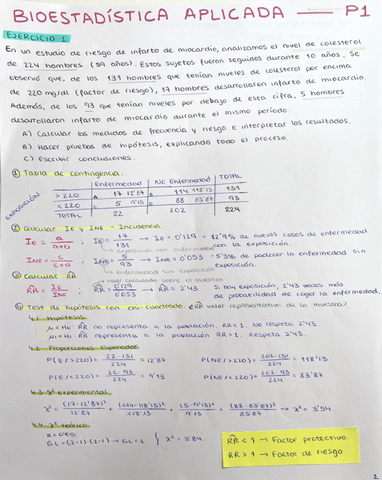 BIOESTADÍSTICA APLICADA — P1
EJERCICIO 1
En un estudio de riesgo de infarto de miocardio, analizamos el nivel de colesterol
de 224 hombres (59 años). Estos sujetos fueron seguidos durante 10 años. Se
observó que, de los 131 hombres que tenían niveles de colesterol por encima
de 220 mg/dl (factor de riesgo), 17 hombres desarrollaron infarto de miocardio.
Además, de los 93 que tenían niveles por debajo de esta cifra, 5 hombres
desarrollaron infarto de miocardio durante el mismo período.
A) Calcular las medidas de frecuencia y riesgo e interpretar los resultados.
B) Hacer pruebas de hipótesis, explicando todo el proceso.
C) Escribir conclusiones.
① Tabla de contingencia.
Enfermedad No Enfermedad TOTAL
EXPOSICIÓN
>220 A 17 12'87 B 114 118'13 131
<220 C 5 9'13 D 88 83'87 93
TOTAL 22 202 224
② Calcular Ie y INe - Incidencia
Ie = a/a+b ; Ie = 17/131 → Ie = 0'129 - 12'9% de nuevos casos de enfermedad
con la exposición.
INe = c/c+d ; INe = 5/93 → INe = 0'053 - 5'3% de padecer la enfermedad sin
exposición.
③ Calcular RR
RR = Ie/INe ; RR = 0'129/0'053 → RR = 2'43 Si hay exposición, 2'43 veces más
de probabilidad de coger la enfermedad.
④ Test de hipótesis con chi-cuadrado (¿RR valor representativo de la muestra?)
4.1. Hipótesis
H0 RR no representa a la población. RR < 1. No respeta 2'43.
RR representa a la población RR > 1. Respeta 2'43.
4.2. Proporciones esperadas
P(E/>220) = 22·131/224 = 12'87 P(NE/>220) = 202·131/224 = 118'13
P(E/<220) = 22·93/224 = 9'13 P(NE/<220) = 202·93/224 = 83'87
4.3. X² experimental
X² = (17-12'87)²/12'87 + (114-118'13)²/118'13 + (5-9'13)²/9'13 + (88-83'87)²/83'87 → X² = 3'54
4.4. X² teórico
α = 0'05
GL = (2-1)·(2-1) → GL = 1 } X² = 3'84.
RR < 1 → Factor protectivo.
RR > 1 → Factor de riesgo
1